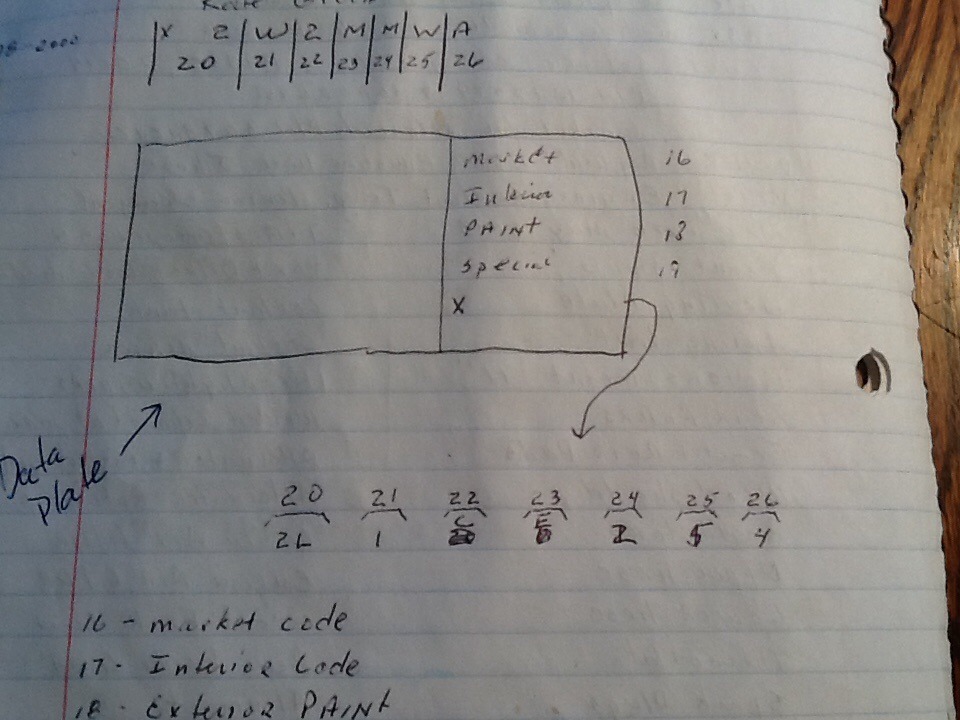 x 2 | W | 2 | M | M | W | A
20 | 21 | 22 | 23 | 24 | 25 | 26
Market 16
Interior 17
PAINT 18
Special 19
X
Data
Plate
20 21 22 23 24 25 26
2L 1 C E 2 5 4
16 - market code
17 - Interior Code
18 - Exterior PAINT